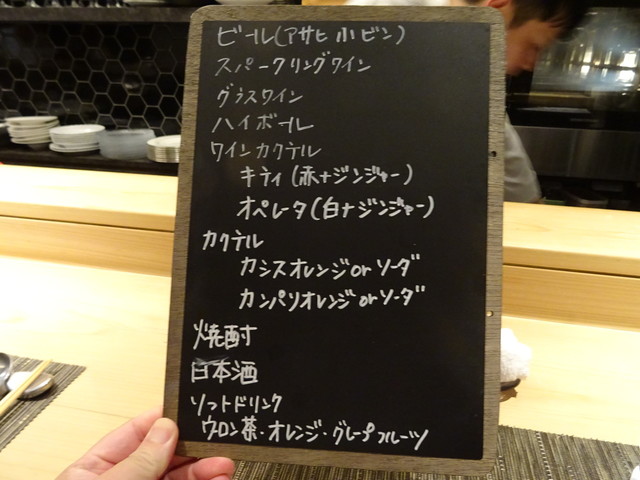 ビール(アサヒ小ビン)
スパークリングワイン
グラスワイン
ハイボール
ワインカクテル
キティ(赤+ジンジャー)
オペレータ(白+ジンジャー)
カクテル
カシスオレンジorソーダ
カンパリオレンジorソーダ
焼酎
日本酒
ソフトドリンク
ウロン茶・オレンジ・グレープフルーツ